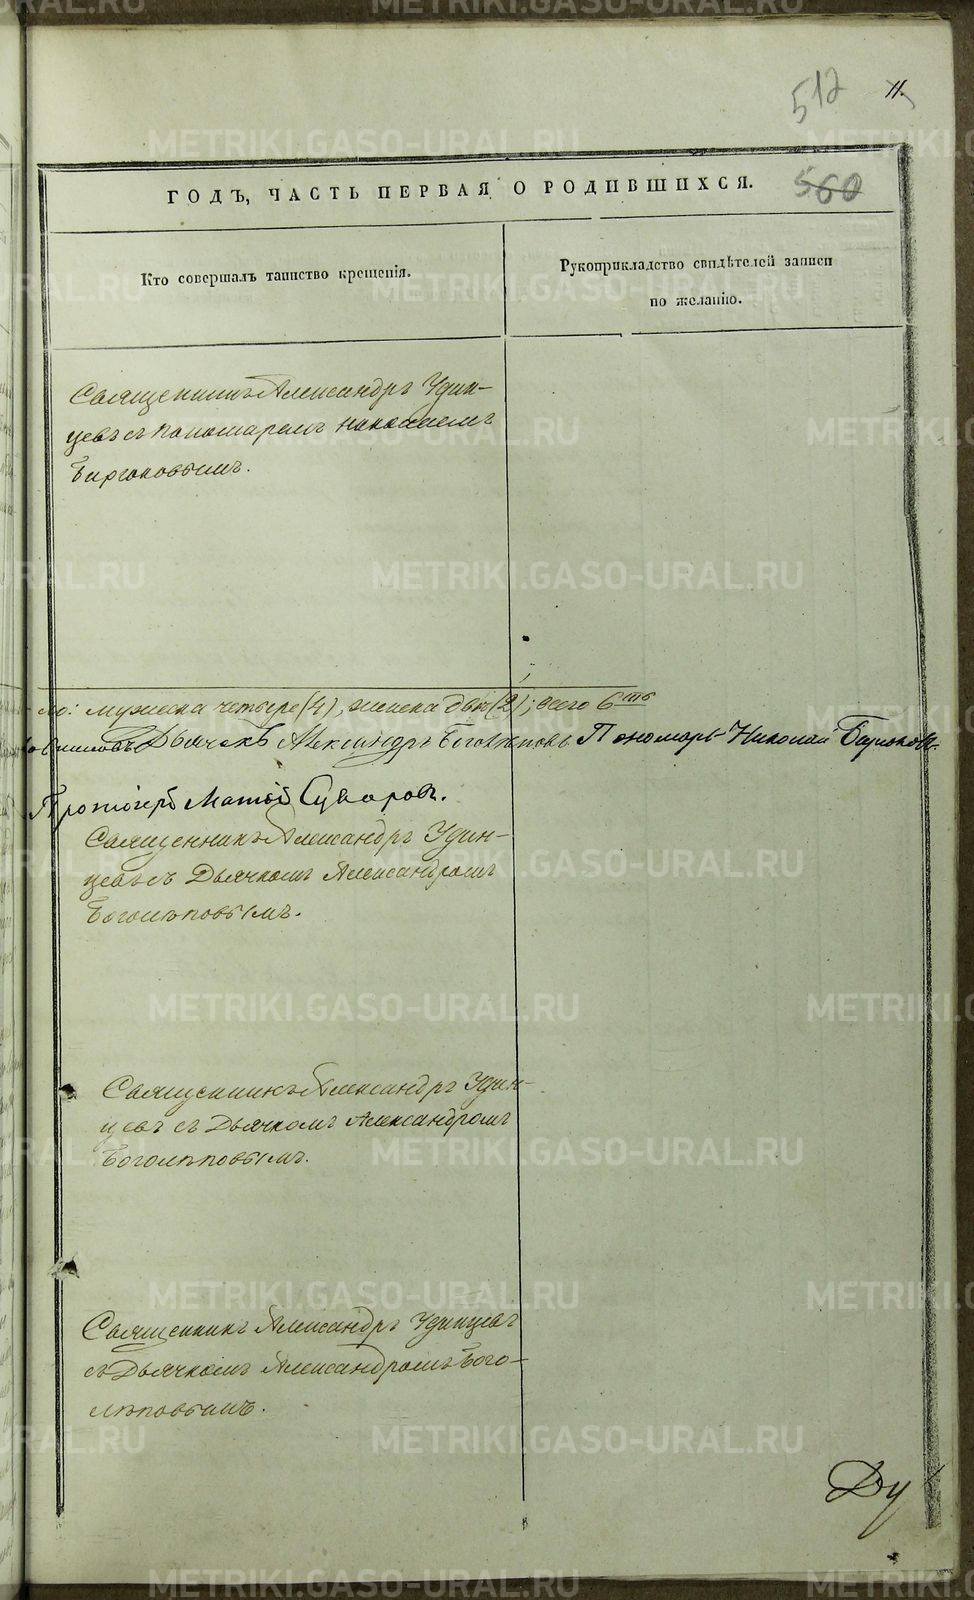 512 11.
ГОДЪ, ЧАСТЬ ПЕРВАЯ О РОДИВШИХСЯ.
560
Кто совершалъ таинство крещенія.
Рукоприкладство свидѣтелей записи
по желанію.
Священникъ Александръ Удин-
цевъ съ пономаремъ Николаемъ
Бирюковымъ.
мужеска четыре (4), женска двѣ (2); всего 6
Дьячекъ Александръ Боголѣповъ Пономарь Николай Бирюковъ.
Протоіерей Матѳей Суваровъ.
Священникъ Александръ Удин-
цевъ съ Дьячкомъ Александромъ
Боголѣповымъ.
Священникъ Александръ Удин-
цевъ съ Дьячкомъ Александромъ
Боголѣповымъ.
Священникъ Александръ Удинцевъ
съ Дьячкомъ Александромъ Бого-
лѣповымъ.
Ду
METRIKI.GASO-URAL.RU